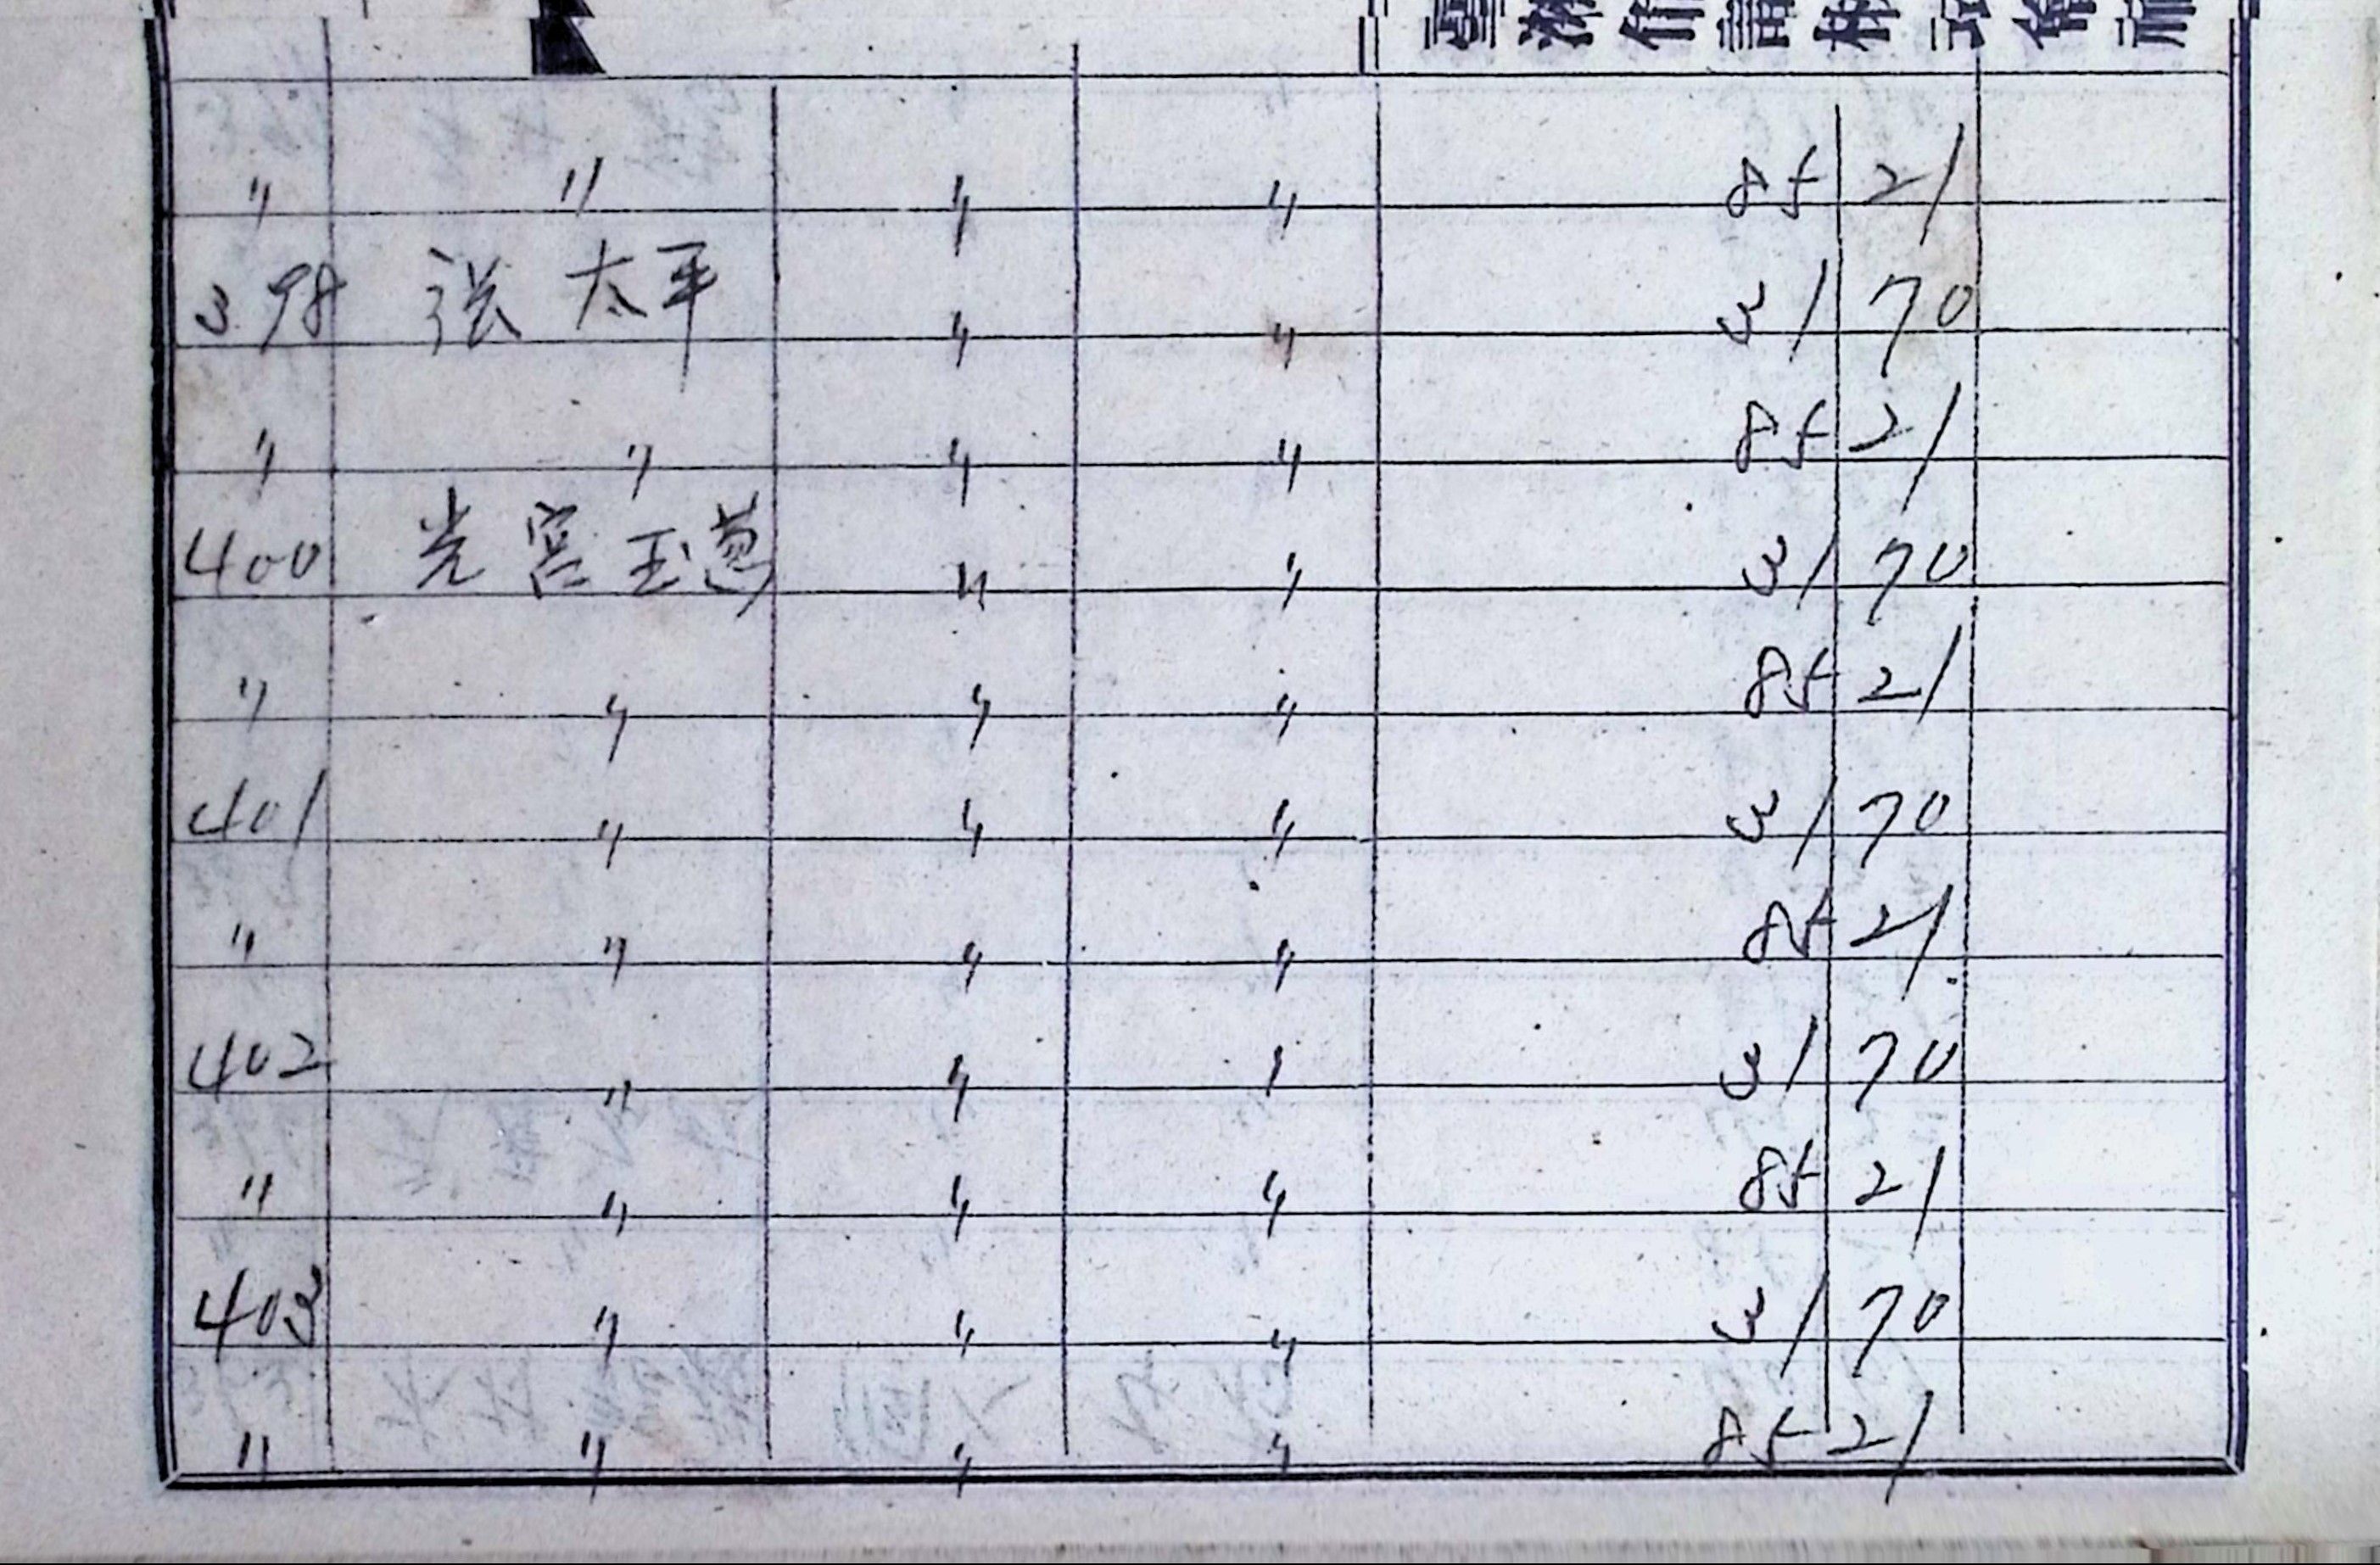 〃 〃 〃 〃 85 21
398 张太平 〃 〃 31 70
〃 〃 〃 〃 85 21
400 光宫玉 〃 〃 31 70
〃 〃 〃 〃 85 21
401 〃 〃 〃 31 70
〃 〃 〃 〃 85 21
402 〃 〃 〃 31 70
〃 〃 〃 〃 85 21
403 〃 〃 〃 31 70
〃 〃 〃 〃 85 21